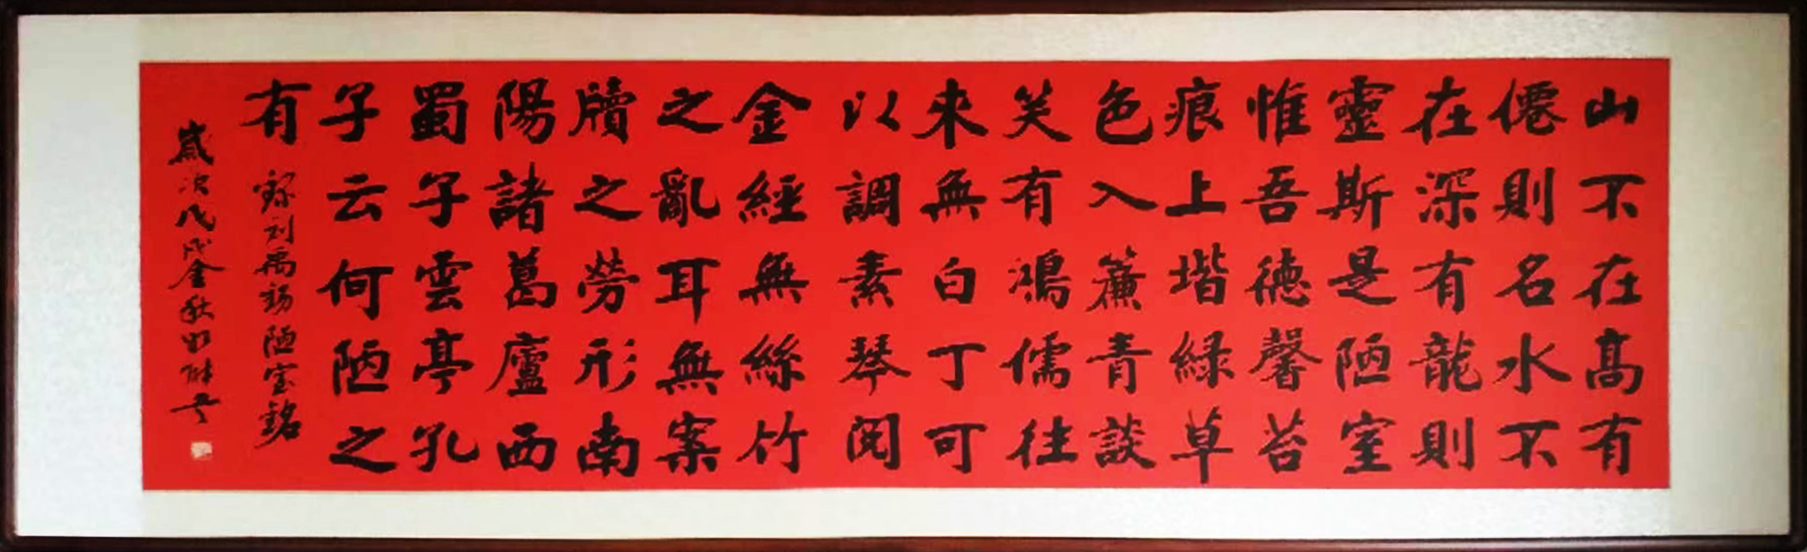 山不在高有
僊則名水不
在深有龍則
靈斯是陋室
惟吾德馨苔
痕上堦綠草
色入簾青談
笑有鴻儒往
來無白丁可
以調素琴閱
金經無絲竹
之亂耳無案
牘之勞形南
陽諸葛廬西
蜀子雲亭孔
子云何陋之
有
錄刘禹錫陋室銘
歲次戊戌金秋